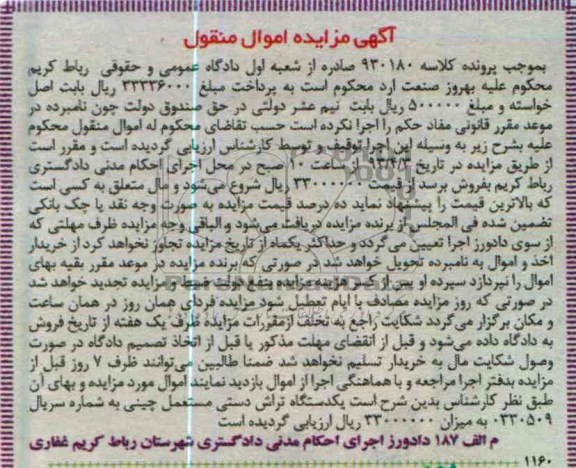 آگهی مزایده اموال منقول
بموجب پرونده کلاسه ۹۳۰۱۸۰ صادره از شعبه اول دادگاه عمومی و حقوقی رباط کریم
محکوم علیه بهروز صنعت ارد محکوم است به پرداخت مبلغ ۳۳۳۳۶۰۰۰ ریال بابت اصل
خواسته و مبلغ ۵۰۰۰۰۰ ریال بابت نیم عشر دولتی در حق صندوق دولت چون نامبرده در
موعد مقرر قانونی مفاد حکم را اجرا نکرده است حسب تقاضای محکوم له اموال منقول محکوم
علیه بشرح زیر به وسیله این اجرا توقیف و توسط کارشناس ارزیابی گردیده است و مقرر است
از طریق مزایده در تاریخ ۹۴/۴/۲ از ساعت ۱۰ صبح در محل اجرای احکام مدنی دادگستری
رباط کریم بفروش برسد از قیمت ۳۳۰۰۰۰۰۰ ریال شروع می‌شود و مال متعلق به کسی است
که بالاترین قیمت را پیشنهاد نماید ده درصد قیمت مزایده به صورت وجه نقد یا چک بانکی
تضمین شده فی المجلس از برنده مزایده دریافت می‌شود و الباقی وجه مزایده ظرف مهلتی که
از سوی دادورز اجرا تعیین می‌گردد و حداکثر یکماه از تاریخ مزایده تجاوز نخواهد کرد از خریدار
اخذ و اموال به نامبرده تحویل خواهد شد در صورتی که برنده مزایده در موعد مقرر بقیه بهای
اموال را نپردازد سپرده او پس از کسر هزینه مزایده بنفع دولت ضبط و مزایده تجدید خواهد شد
در صورتی که روز مزایده مصادف با ایام تعطیل شود مزایده فردای همان روز در همان ساعت
و مکان برگزار می‌گردد شکایت راجع به تخلف ازمقررات مزایده ظرف یک هفته از تاریخ فروش
به دادگاه داده می‌شود و قبل از انقضای مهلت مذکور یا قبل از اتخاذ تصمیم دادگاه در صورت
وصول شکایت مال به خریدار تسلیم نخواهد شد ضمنا طالبین می‌توانند ظرف ۷ روز قبل از
مزایده بدفتر اجرا مراجعه و با هماهنگی اجرا از اموال بازدید نمایند اموال مورد مزایده و بهای آن
طبق نظر کارشناس بدین شرح است یکدستگاه تراش دستی مستعمل چینی به شماره سریال
۰۳۳۰۵۰۹ به میزان ۳۳۰۰۰۰۰۰ ریال ارزیابی گردیده است
م الف ۱۸۷ دادورز اجرای احکام مدنی دادگستری شهرستان رباط کریم غفاری
۱۱۶۰